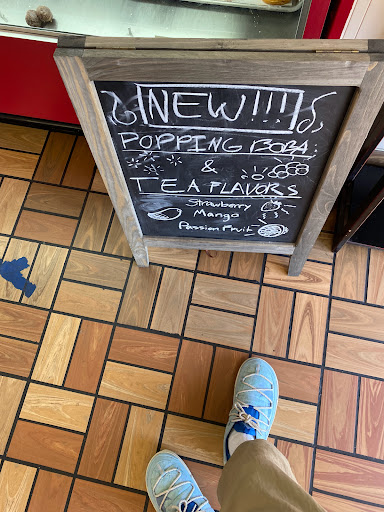 NEW!!!
POPPING BOBA
&
TEA FLAVORS
Strawberry
Mango
Passion Fruit